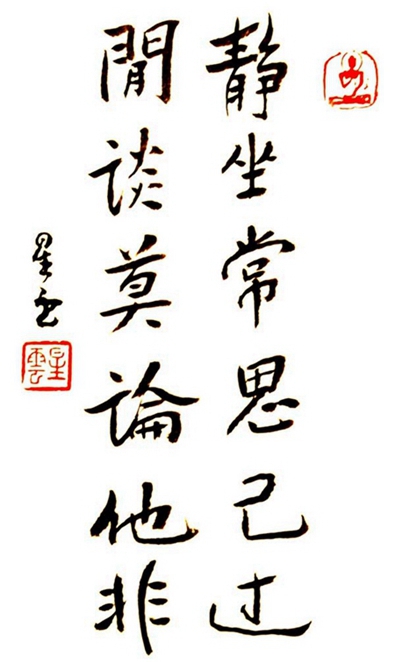 静坐常思己过
閒談莫論他非
星雲
星雲